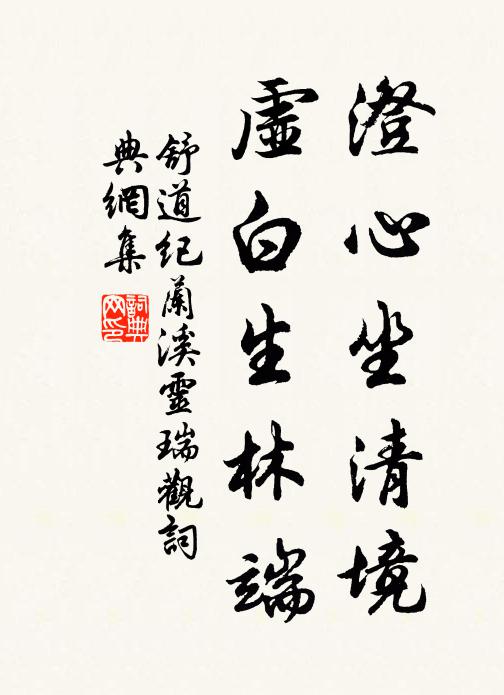 澄心坐清境
虛白生林端
舒道紀蘭溪靈瑞觀詞
典網集
詞典網印